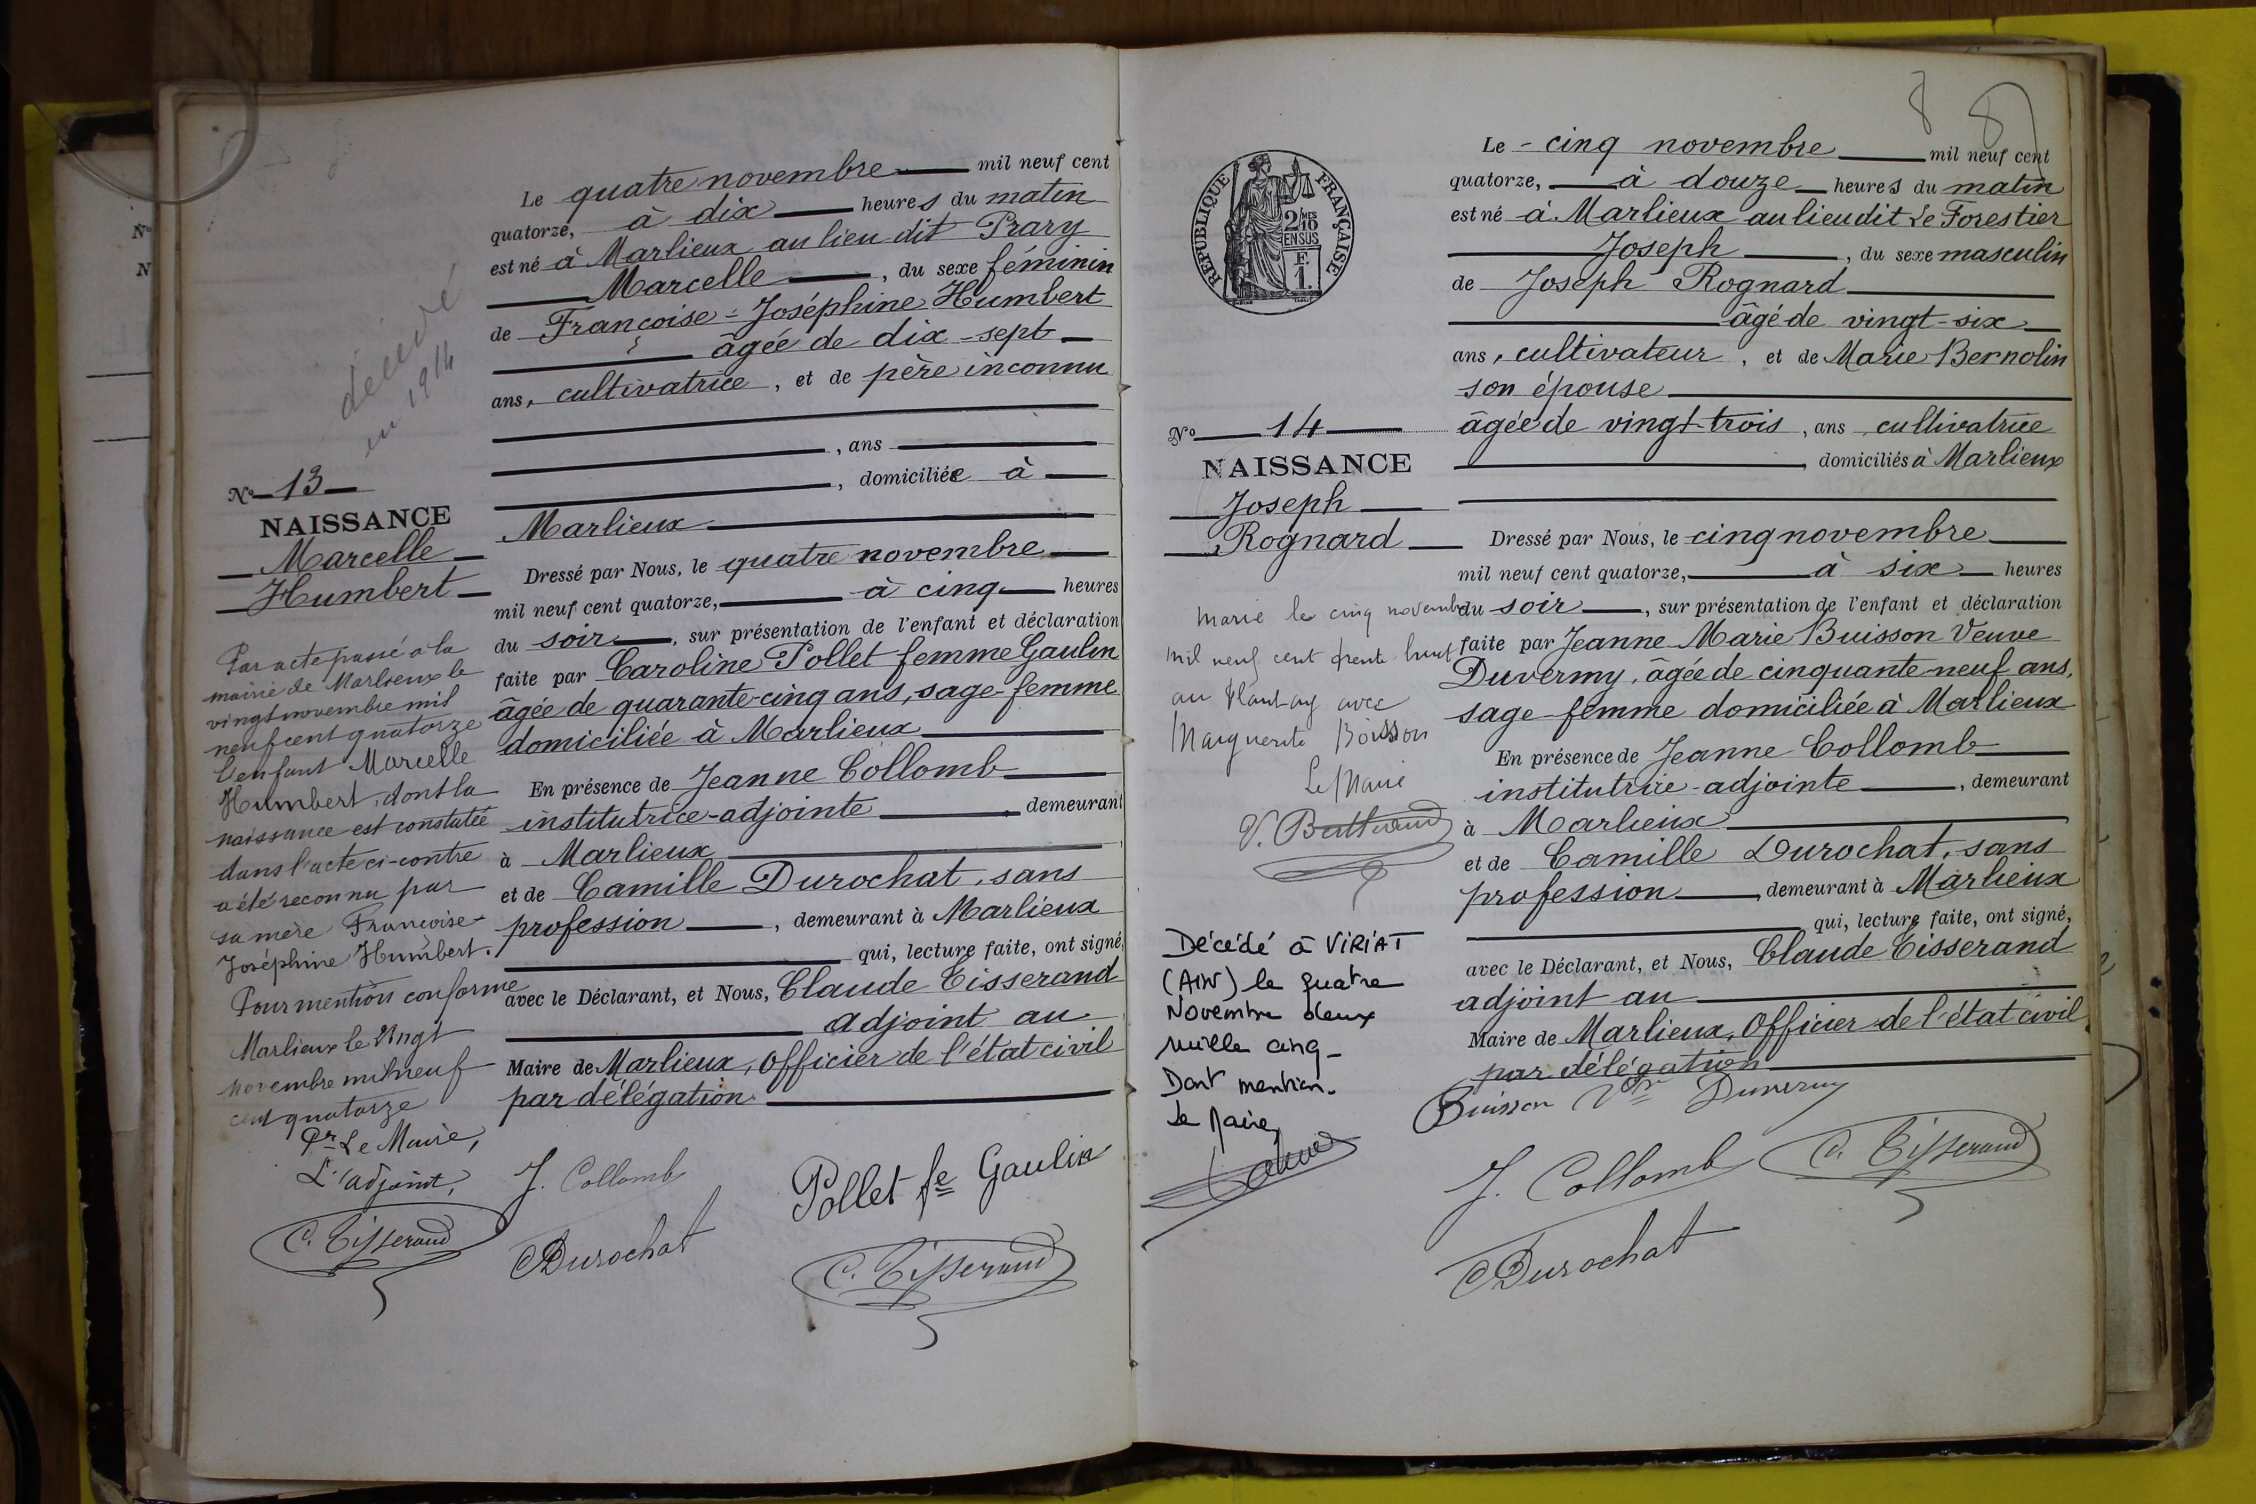 décédé
en 1914
Le quatre novembre mil neuf cent
quatorze, à dix heures du matin
est né à Marlieux au lieu dit Prary
Marcelle, du sexe féminin
de Françoise-Joséphine Humbert
âgée de dix-sept
ans, cultivatrice, et de père inconnu
, ans
, domiciliée à
Marlieux
Nº 13
NAISSANCE
Marcelle
Humbert
Dressé par Nous, le quatre novembre
mil neuf cent quatorze, à cinq heures
du soir, sur présentation de l'enfant et déclaration
faite par Caroline Pollet femme Gaulin
âgée de quarante-cinq ans, sage-femme
domiciliée à Marlieux
En présence de Jeanne Collomb
institutrice-adjointe, demeurant
à Marlieux
et de Camille Durochat, sans
profession, demeurant à Marlieux
qui, lecture faite, ont signé,
avec le Déclarant, et Nous, Claude Tisserand
adjoint au
Maire de Marlieux, Officier de l'état civil
par délégation
Par acte passé à la
mairie de Marlieux le
vingt novembre mil
neuf cent quatorze
l'enfant Marcelle
Humbert, dont la
naissance est constatée
dans l'acte ci-contre
a été reconnu par
sa mère Françoise-
Joséphine Humbert.
Pour mention conforme
Marlieux le Vingt
novembre mil neuf
cent quatorze
Pr Le Maire,
L'adjoint,
C. Tisserand
J. Collomb
Pollet fe Gaulin
CDurochat
C. Tisserand
8 8
RÉPUBLIQUE FRANÇAISE
2/10MES
EN SUS
F.
1.
Le cinq novembre mil neuf cent
quatorze, à douze heures du matin
est né à Marlieux au lieu dit Le Forestier
Joseph, du sexe masculin
de Joseph Rognard
âgé de vingt-six
ans, cultivateur, et de Marie Bernolin
son épouse
âgée de vingt-trois, ans cultivatrice
domiciliés à Marlieux
Nº 14
NAISSANCE
Joseph
Rognard
Dressé par Nous, le cinq novembre
mil neuf cent quatorze, à six heures
du soir, sur présentation de l'enfant et déclaration
faite par Jeanne-Marie Buisson Veuve
Duvermy, âgée de cinquante-neuf ans,
sage-femme domiciliée à Marlieux
En présence de Jeanne Collomb
institutrice-adjointe, demeurant
à Marlieux
et de Camille Durochat, sans
profession, demeurant à Marlieux
qui, lecture faite, ont signé,
avec le Déclarant, et Nous, Claude Tisserand
adjoint au
Maire de Marlieux, Officier de l'état civil
par délégation
Marié le cinq novembre
mil neuf cent trente huit
au Plantay avec
Marguerite Boisson
Le Maire
Décédé à VIRIAT
(AIN) le quatre
Novembre deux
mille cinq-
Dont mention.
Le Maire,
Buisson Vve Duvermy
J. Collomb
C. Tisserand
CDurochat